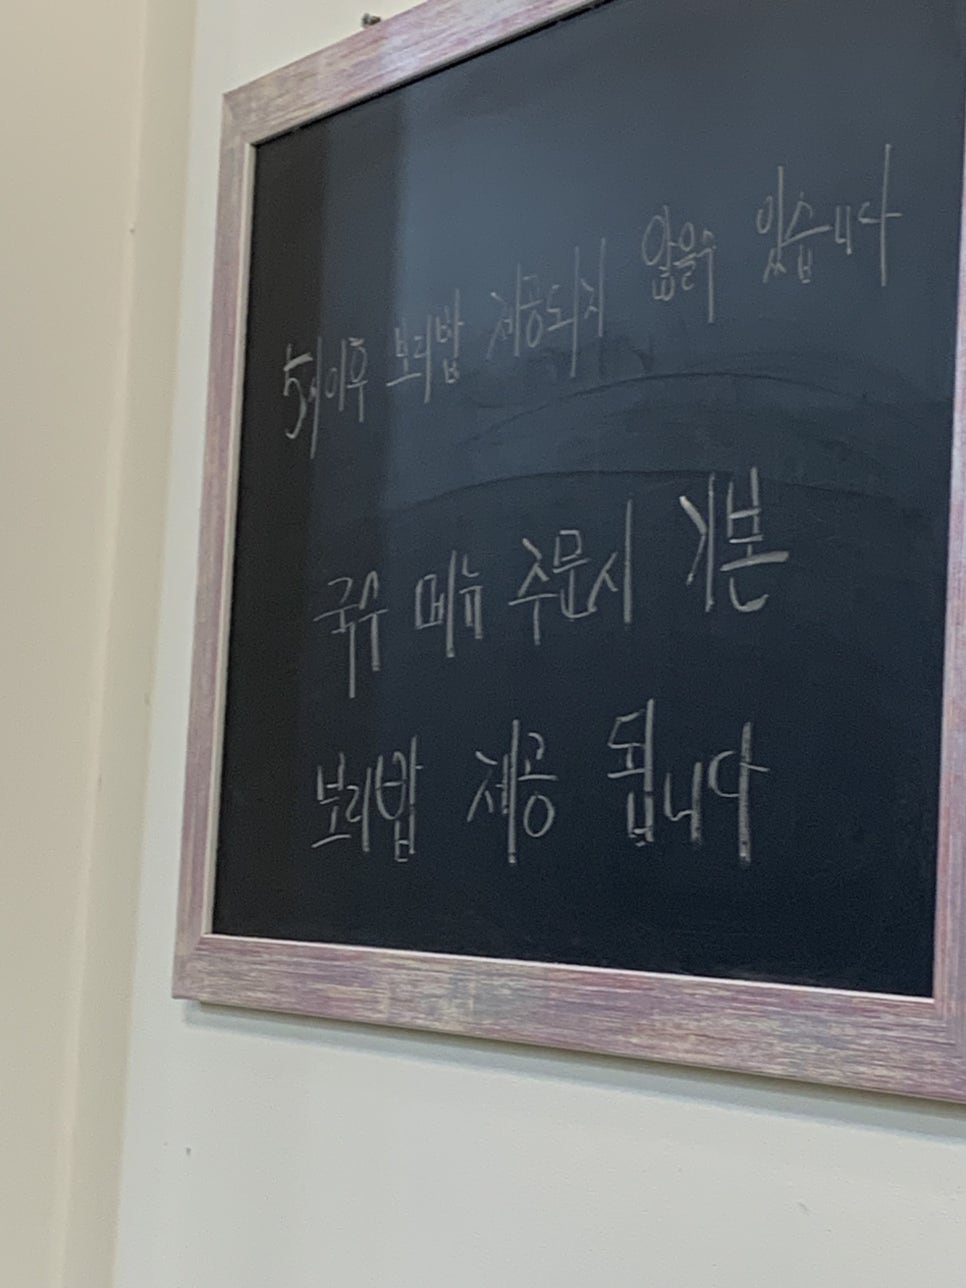 5시이후 보리밥 제공되지 않을수 있습니다
국수 메뉴 주문시 기본
보리밥 제공 됩니다